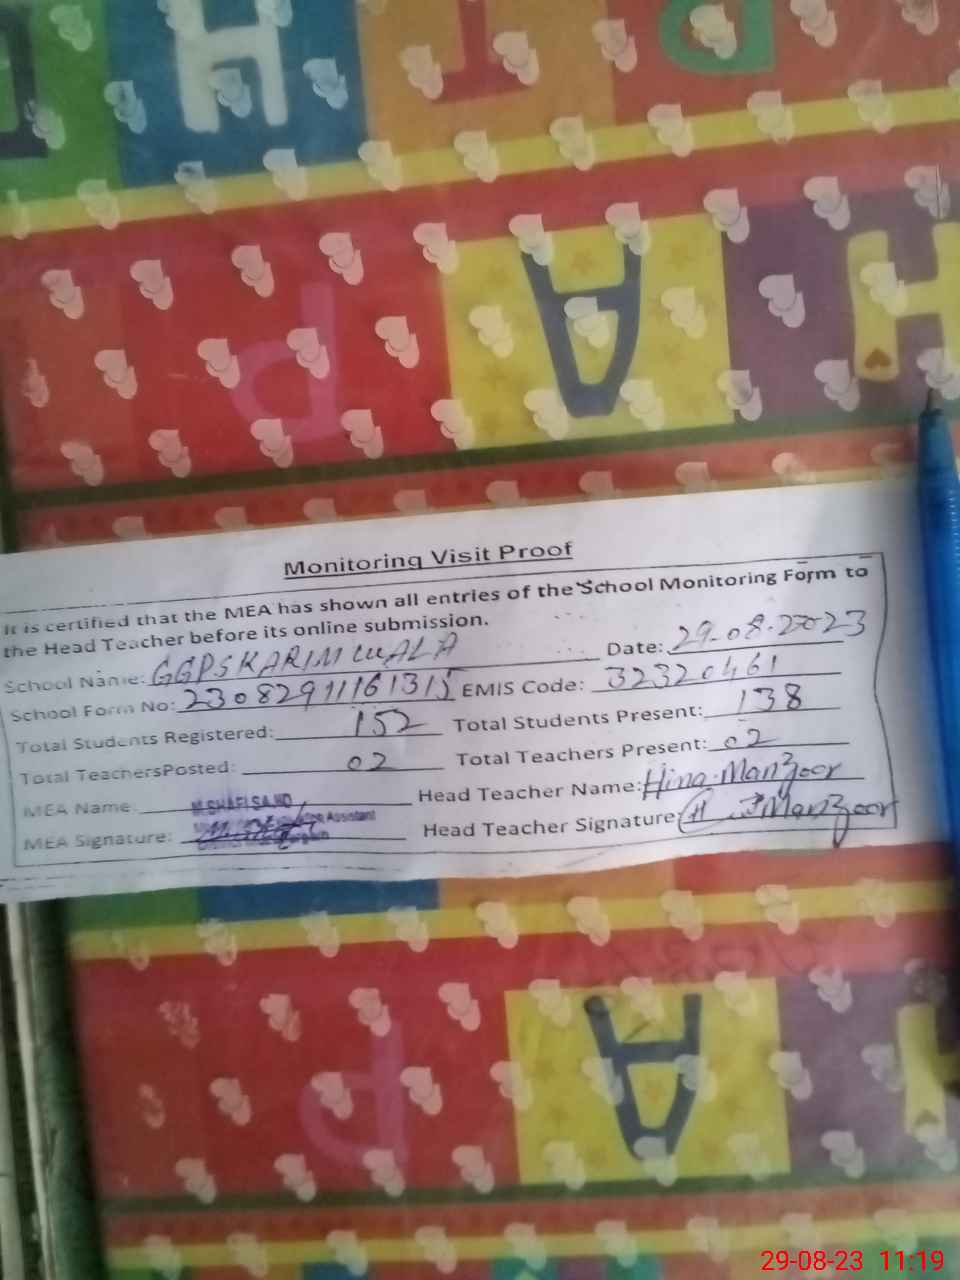 H T
P A H
Monitoring Visit Proof
It is certified that the MEA has shown all entries of the School Monitoring Form to
the Head Teacher before its online submission.
School Name: GGPS KARIM WALA Date: 29-08-2023
School Form No: 23082911161315 EMIS Code: 32320461
Total Students Registered: 152 Total Students Present: 138
Total TeachersPosted: 02 Total Teachers Present: 02
MEA Name: Head Teacher Name: Hina Manzoor
Assistant
MEA Signature: Head Teacher Signature: H Manzoor
P A
29-08-23 11:19